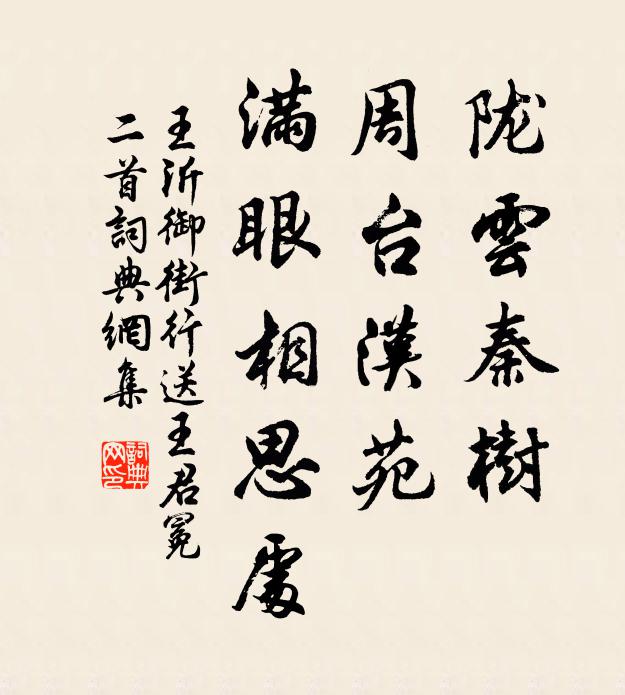 陇雲秦樹
周台漢苑
滿眼相思處
王沂御街行送王君冕
二首詞典網集
詞典
网印